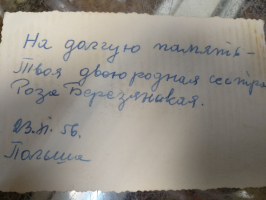 На долгую память –
Твоя двоюродная сестра
Роза Березяцкая.
23.XI.56.
Польша